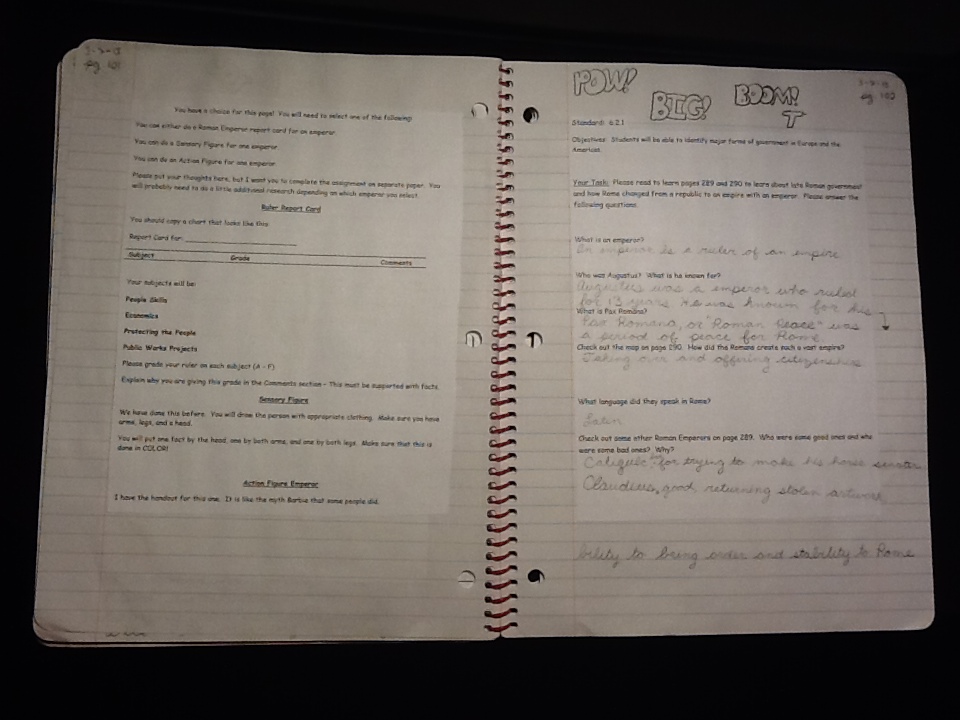 pg. 101
You have a choice for this page! You will need to select one of the following:
You can either do a Roman Emperor report card for an emperor.
You can do a Sensory Figure for one emperor.
You can do an Action Figure for one emperor.
Please put your thoughts here, but I want you to complete the assignment on separate paper. You
will probably need to do a little additional research depending on which emperor you select.
Ruler Report Card
You should copy a chart that looks like this:
Report Card for:
Subject Grade Comments
Your subjects will be:
People Skills
Economics
Protecting the People
Public Works Projects
Please grade your ruler on each subject (A - F).
Explain why you are giving this grade in the Comments section - This must be supported with facts.
Sensory Figure
We have done this before. You will draw the person with appropriate clothing. Make sure you have
arms, legs, and a head.
You will put one fact by the head, one by both arms, and one by both legs. Make sure that this is
done in COLOR!
Action Figure Emperor
I have the handout for this one. It is like the myth Barbie that some people did.
POW!
BIG!
BOOM!
T
pg. 102
Standard: 6.2.1
Objectives: Students will be able to identify major forms of government in Europe and the
Americas.
Your Task: Please read to learn pages 289 and 290 to learn about late Roman government
and how Rome changed from a republic to an empire with an emperor. Please answer the
following questions.
What is an emperor?
An emperor is a ruler of an empire
Who was Augustus? What is he known for?
Augustus was a emperor who ruled
for 13 years. He was known for his
What is Pax Romana?
Pax Romana, or "Roman Peace" was
a period of peace for Rome
Check out the map on page 290. How did the Romans create such a vast empire?
Taking over and offering citizenship
What language did they speak in Rome?
Latin
Check out some other Roman Emperors on page 289. Who were some good ones and who
were some bad ones? Why?
Caligula for trying to make his horse senator
Claudius, good returning stolen artwork
bility to bring order and stability to Rome